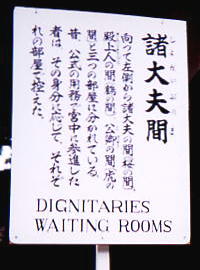 諸大夫間
しょだいぶのま
向って左側から諸大夫の間「桜の間」、
殿上人の間「鶴の間」、公卿の間「虎の
間」と三つの部屋に分かれている。
昔、公式の用務で宮中に参進した
者は、その身分に応じて、それぞ
れの部屋で控えた。
DIGNITARIES
WAITING ROOMS